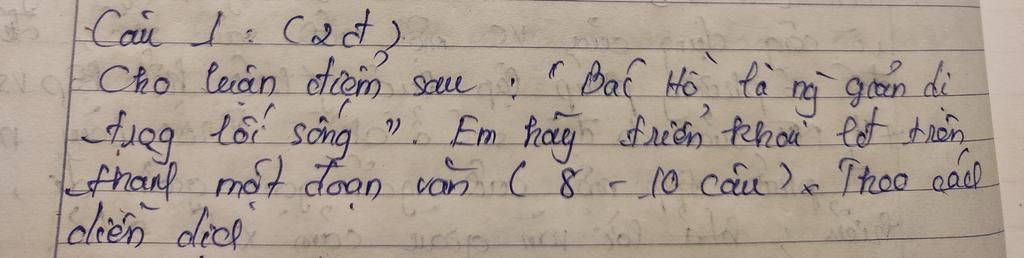 Câu 1 : (2đ)
Cho luận điểm sau : " Bác Hồ là ng giản dị
trog lối sống ". Em hãy triển khai lđ trên
thành một đoạn văn ( 8 - 10 câu ). Theo cách
diễn dịch